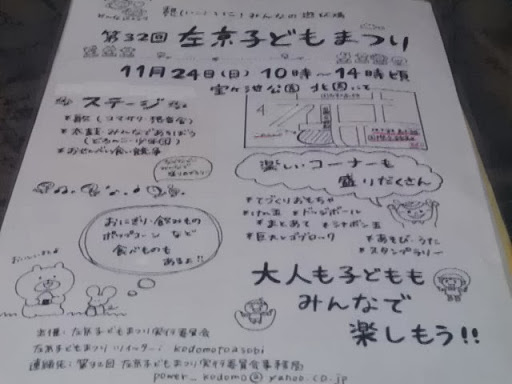 親(いこいこ)みんなの遊び場
第32回 左京子どもまつり
11月24日(日) 10時〜14時頃
宝ヶ池公園 北園にて
ステージ
おせんべい食い競争
楽しいコーナーも
盛りだくさん
*てづくりおもちゃ
*けん玉 *ドッジボール
*まとあて *シャボン玉
*巨大レゴブロック
*あそび・うた
*スタンプラリー
おにぎり・飲みもの
ポップコーン など
食べものも
あるよ!!
おいしいよ
大人も子どもも
みんなで
楽しもう!!
主催:左京子どもまつり実行委員会
左京子どもまつりツイッター: kodomotoasobi
連絡先:第32回 左京子どもまつり実行委員会事務局
power_kodomo@yahoo.co.jp